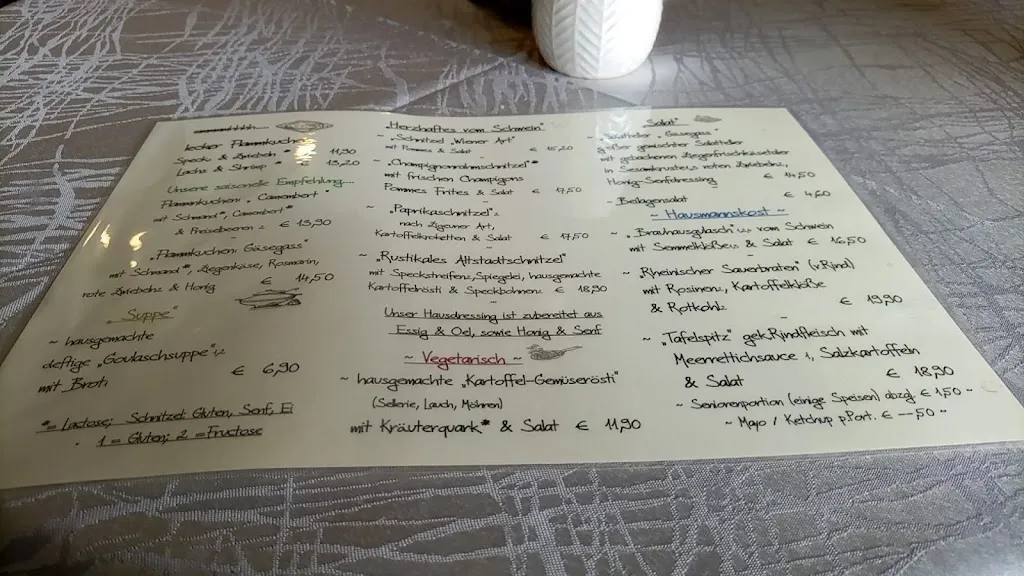 lecker Flammkuchen
Speck & Zwiebeln 11,90
Lachs & Shrimp 13,20
Unsere saisonelle Empfehlung....
Flammkuchen „Camembert"
mit Schmand*, Camembert*
& Preiselbeeren 2 € 13,90
„Flammkuchen Gäsegass"
mit Schmand*, Ziegenkäse, Rosmarin,
rote Zwiebeln2 & Honig € 14,50
„Suppe"
~ hausgemachte
deftige „Goulaschsuppe"1,2
mit Brot1 € 6,90
*= Lactose; Schnitzel: Gluten, Senf, Ei
1 = Gluten; 2 = Fructose
„Herzhaftes vom Schwein"
~ „Schnitzel „Wiener Art"
mit Pommes & Salat € 15,20
~ „Champignonrahmschnitzel"*
mit frischen Champignons
Pommes Frites & Salat € 17,50
~ „Paprikaschnitzel"2
nach Zigeuner Art,
Kartoffelkroketten & Salat € 17,50
~ „Rustikales Altstadtschnitzel"
mit Speckstreifen, Spiegelei, hausgemachte
Kartoffelrösti & Speckbohnen2 € 18,90
Unser Hausdressing ist zubereitet aus
Essig & Oel, sowie Honig & Senf
~ Vegetarisch ~
~ hausgemachte „Kartoffel-Gemüserösti"
(Sellerie, Lauch, Möhren)
mit Kräuterquark* & Salat € 11,90
„Salat"
Gäsegass"
großer gemischter Salatteller
mit gebackenen Ziegenfrischkäsetaler
in Sesamkruste, roten Zwiebeln2,
Honig-Senfdressing € 14,50
~ Beilagensalat € 4,60
~ Hausmannskost ~
~ „Brauhausgulasch" vom Schwein
mit Semmelklößen1 & Salat € 16,50
~ „Rheinischer Sauerbraten" (v. Rind)
mit Rosinen2, Kartoffelklöße
& Rotkohl2 € 19,90
~ „Tafelspitz" gek. Rindfleisch mit
Meerrettichsauce 1, Salzkartoffeln
& Salat € 18,90
~ Seniorenportion (einige Speisen) abzgl. € 1,50 ~
~ Mayo / Ketchup p.Port. € --,50 ~